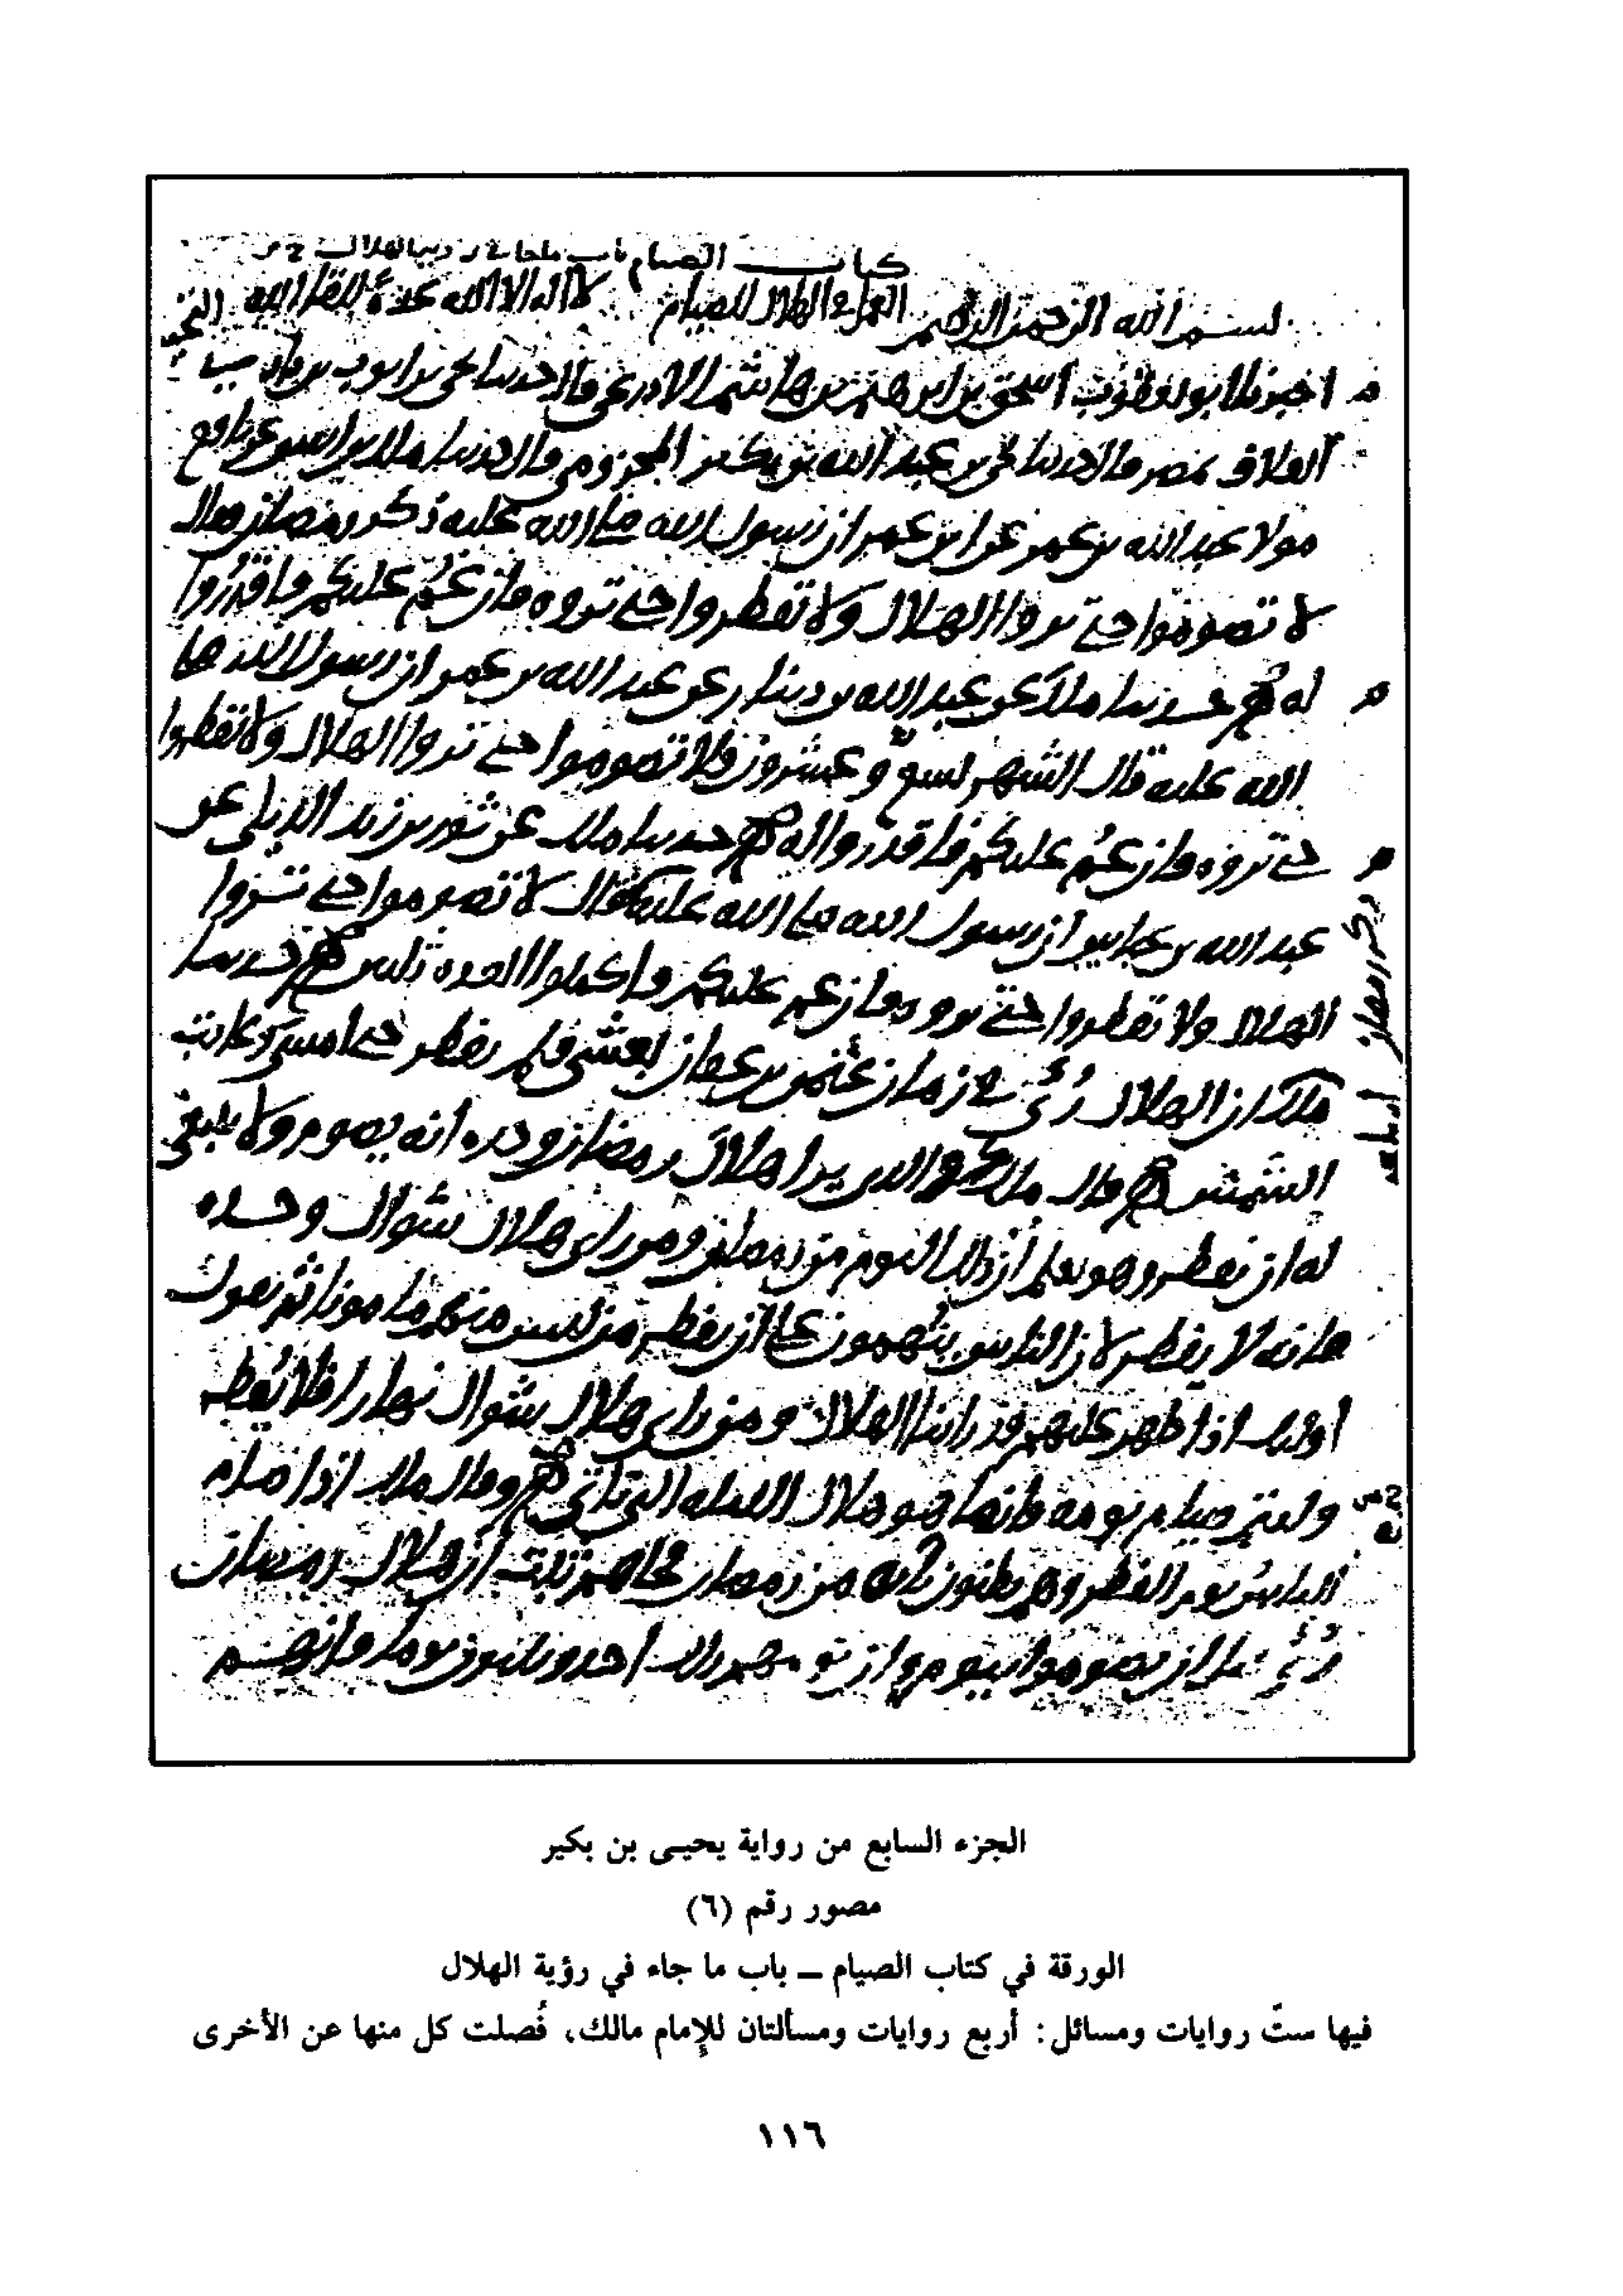 كتاب الصيام باب ما جا في روية الهلال
بسم الله الرحمن الرحيم العمل في الهلال للصيام لا اله الا الله عدة للقا الله
اخبرنا ابو يعقوب اسحق بن ابرهيم بن هاشم الاذرعي قال حدثنا يحيى بن ايوب بن
العلاف بمصر قال حدثنا يحيى بن عبد الله بن بكير المخزومي قال حدثنا ملك بن انس عن نافع
مولا عبد الله بن عمر عن ابن عمر ان رسول الله صلى الله عليه ذكر رمضان فقال
لا تصوموا حتى تروا الهلال ولا تفطروا حتى تروه فان غم عليكم فاقدروا
له حدثنا ملك عن عبد الله بن دينار عن عبد الله بن عمر ان رسول الله صلى
الله عليه قال الشهر تسع وعشرون فلا تصوموا حتى تروا الهلال ولا تفطروا
حتى تروه فان غم عليكم فاقدروا له حدثنا ملك عن ثور بن زيد الديلي عن
عبد الله بن عباس ان رسول الله صلى الله عليه قال لا تصوموا حتى تروا
الهلال ولا تفطروا حتى تروه فان غم عليكم فاكملوا العده ثلثين حدثنا
ملك ان الهلال رئي في زمان عثمن بن عفان بعشي فلم يفطر حتى امسى وغابت
الشمس قال ملك في الذي يرا هلال رمضان وحده انه يصوم ولا ينبغي
له ان يفطر وهو يعلم ان ذلك اليوم من رمضان ومن راى هلال شوال وحده
فانه لا يفطر لان الناس يتهمون على ان يفطر من ليس منهم مامونا ثم يقول
اولئك اذا ظهر عليهم قد راينا الهلال ومن راى هلال شوال نهارا فلا يفطر
وليتم صيام يومه فانما هو هلال الليله التي تاتي وقال ملك اذا صام
الناس يوم الفطر وهم يظنون انه من رمضان فجاهم ثبت ان هلال رمضان
رئي قبل ان يصوموا بيوم وان يومهم ذلك احد وثلثون يوما فانهم
الجزء السابع من رواية يحيى بن بكير
مصور رقم (٦)
الورقة في كتاب الصيام ــ باب ما جاء في رؤية الهلال
فيها ستّ روايات ومسائل: أربع روايات ومسألتان للإمام مالك، فُصلت كل منها عن الأخرى
١١٦